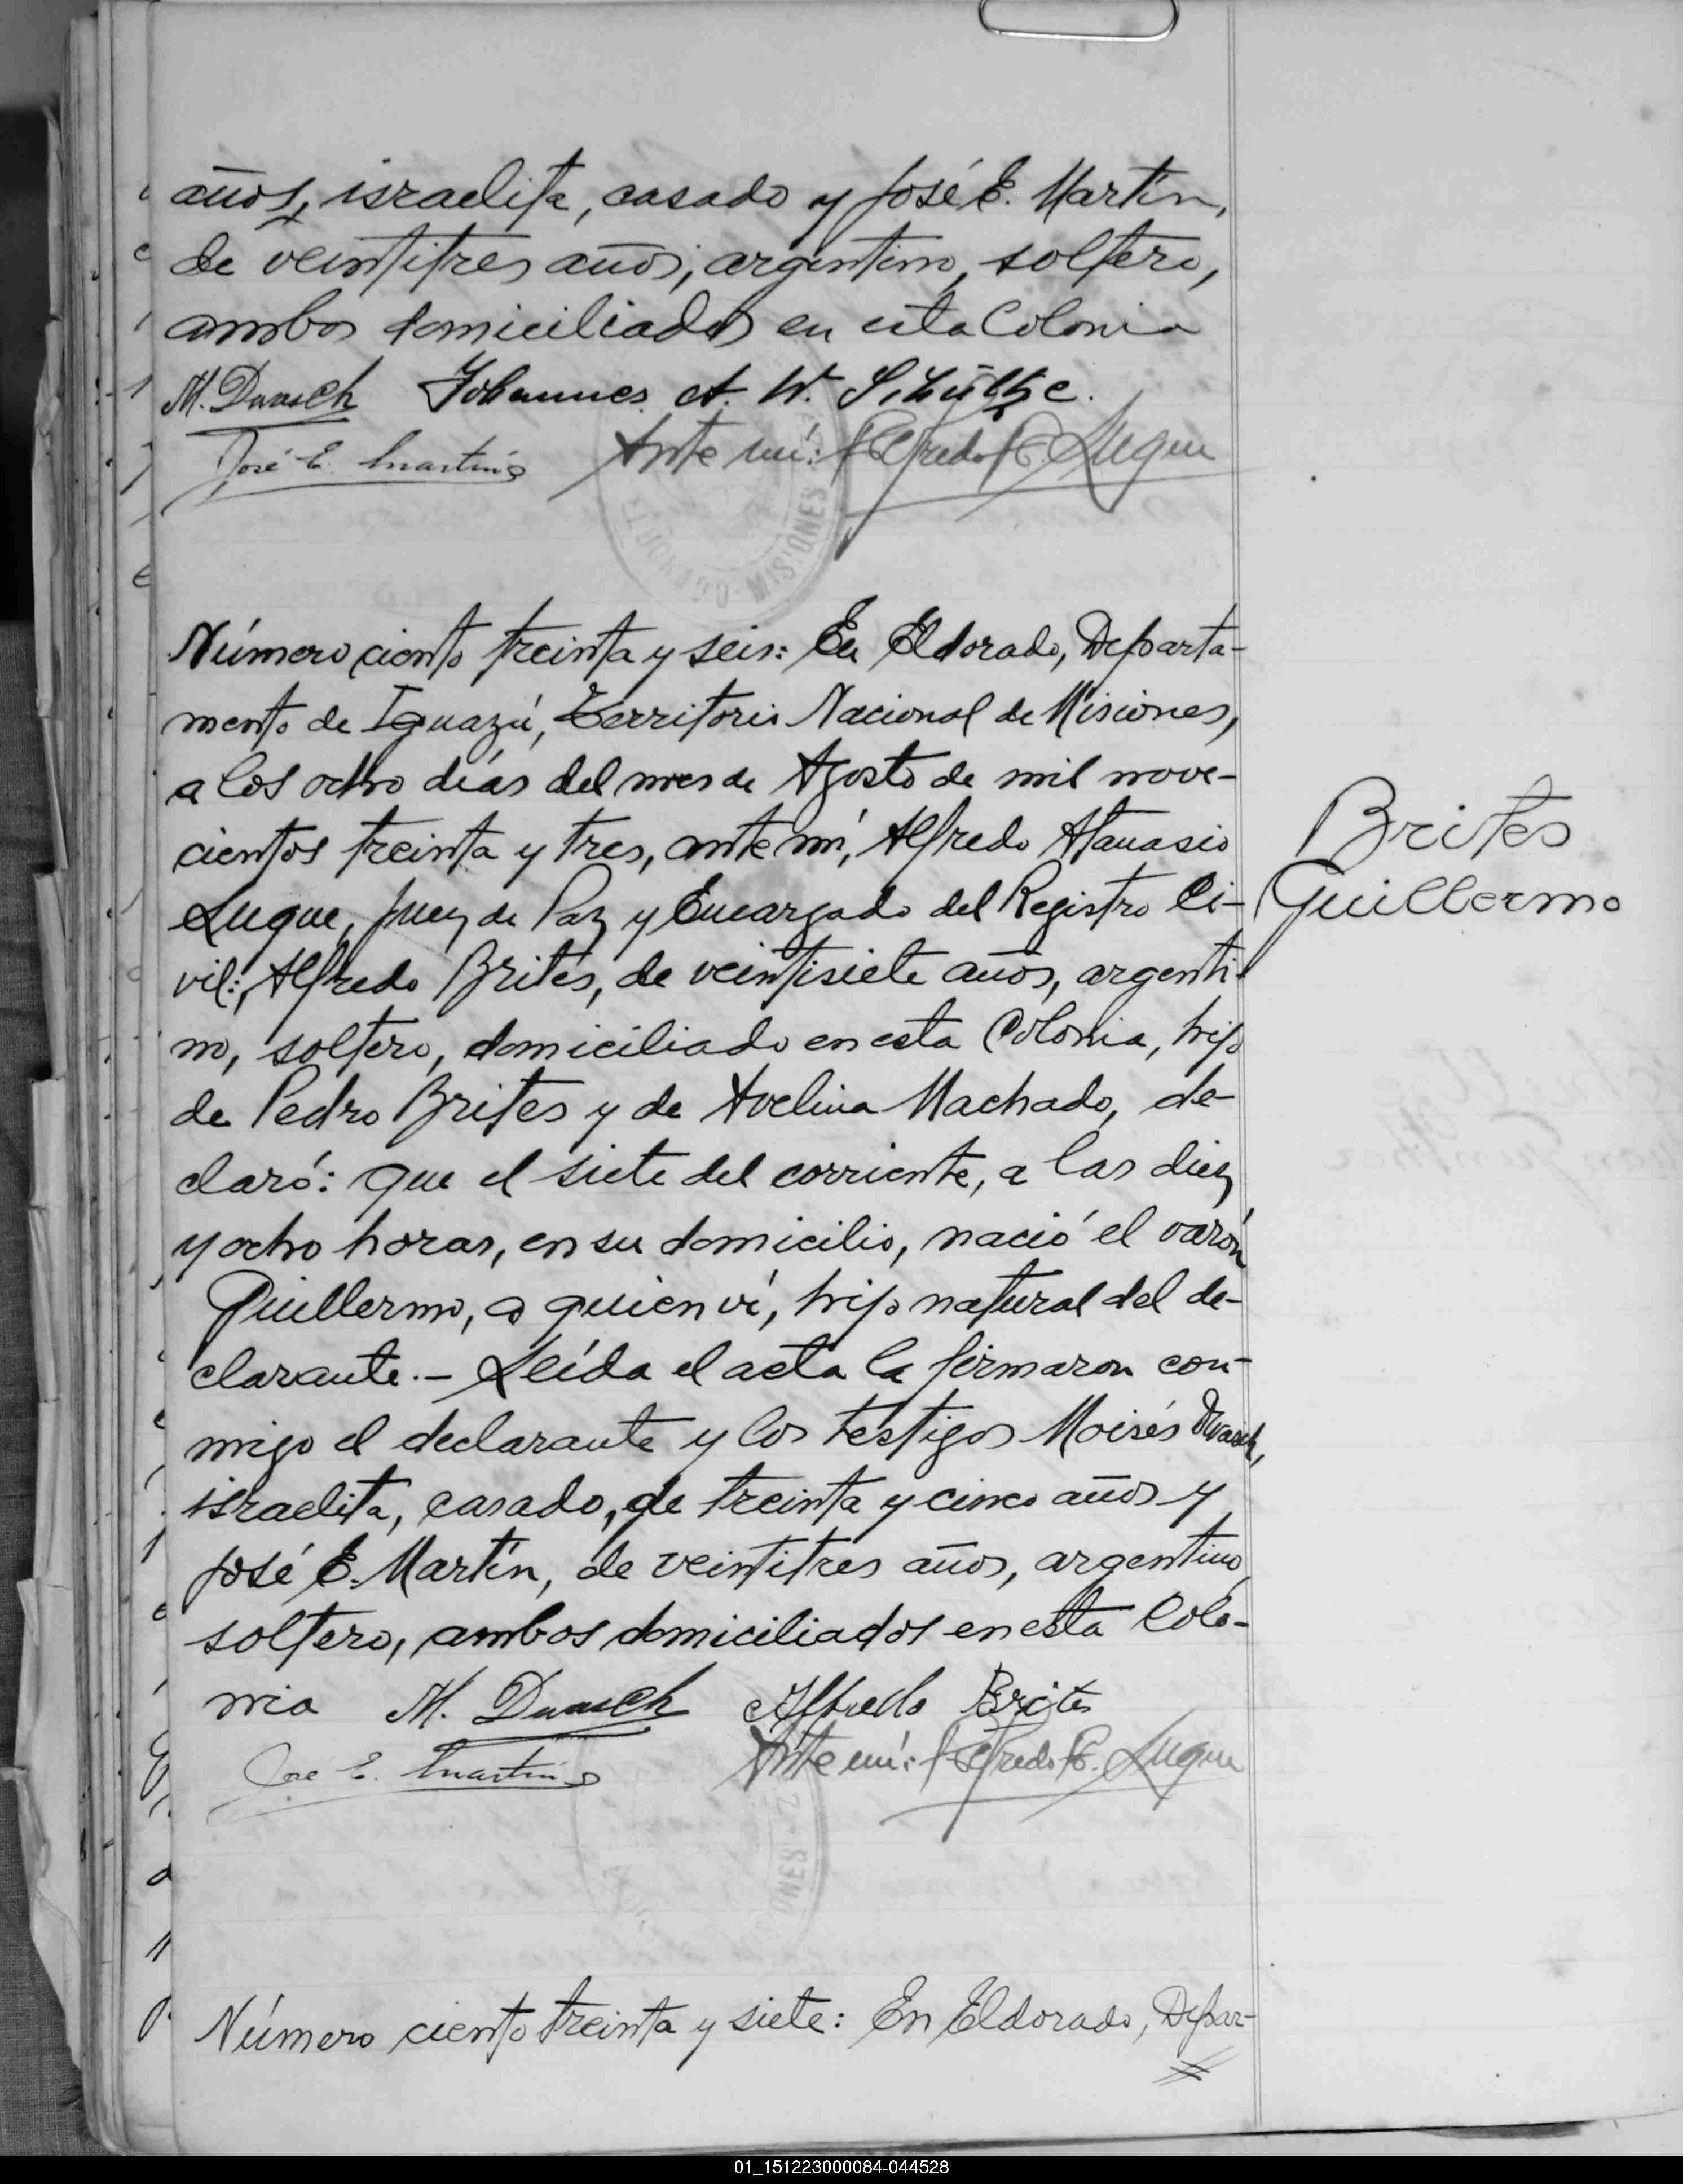 años, israelita, casado y José E. Martín,
de veintitres años, argentino, soltero,
ambos domiciliados en esta Colonia
M. Dwasch Johannes A. W. Schültze.
José E. Martín Ante mí: Alfredo A. Luque
ELDORADO - MISIONES
Número ciento treinta y seis: En Eldorado, Departa-
mento de Iguazú, Territorio Nacional de Misiones,
a los ocho días del mes de Agosto de mil nove-
cientos treinta y tres, ante mí, Alfredo Atanasio
Luque, Juez de Paz y Encargado del Registro Ci-
vil:, Alfredo Brites, de veintisiete años, argenti-
no, soltero, domiciliado en esta Colonia, hijo
de Pedro Brites y de Avelina Machado, de-
claró: que el siete del corriente, a las diez
y ocho horas, en su domicilio, nació el varón
Guillermo, a quien ví, hijo natural del de-
clarante.- Leída el acta la firmaron con-
migo el declarante y los testigos Moisés Dwasch,
israelita, casado, de treinta y cinco años y
José E. Martín, de veintitres años, argentino,
soltero, ambos domiciliados en esta Colo-
nia M. Dwasch Alfredo Brites
José E. Martín Ante mí: Alfredo A. Luque
Brites
Guillermo
Número ciento treinta y siete: En Eldorado, Depar-
01_151223000084-044528